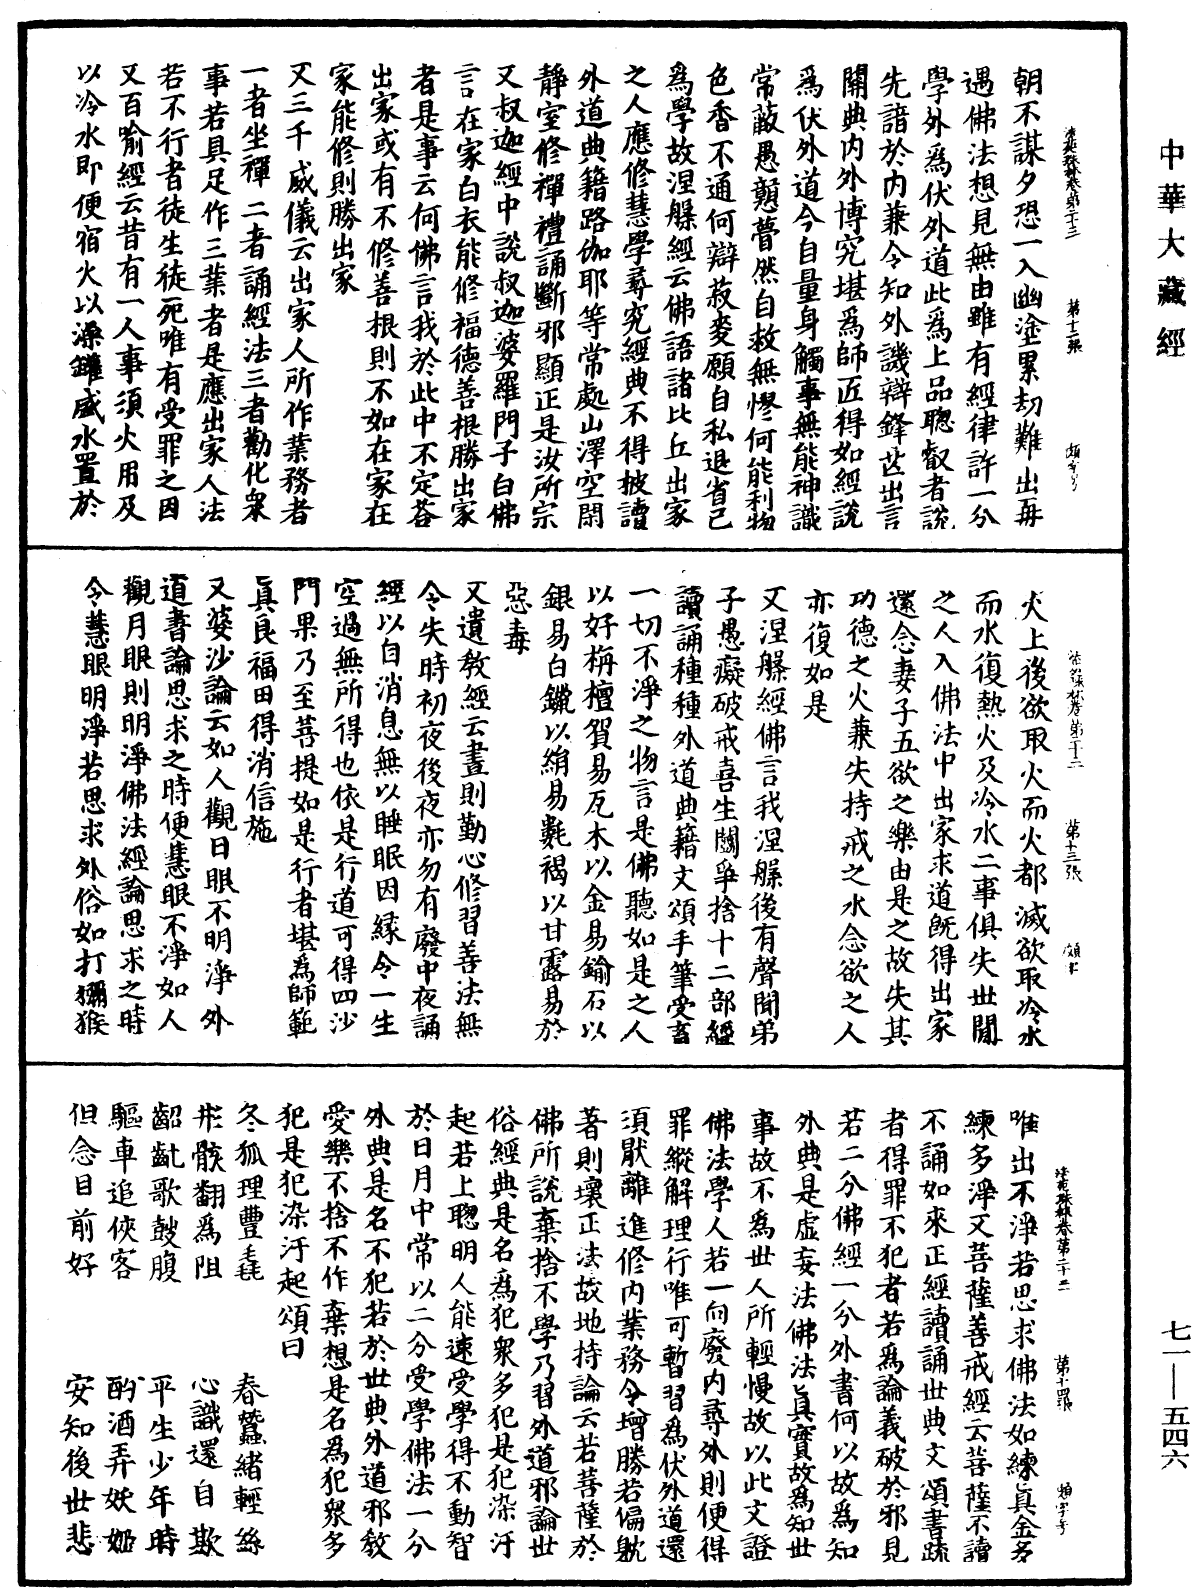 中華大藏經
朝不謀夕恐一入幽塗累劫難出再
遇佛法想見無由雖有經律許一分
學外為伏外道此為上品聰叡者說
先諳於內兼令知外譏辯鋒芒出言
關典內外博究堪為師匠得如經說
為伏外道今自量身觸事無能神識
常蔽愚戇瞢然自救無憀何能利物
色香不通何辯菽麥願自私退省己
為學故涅槃經云佛語諸比丘出家
之人應修慧學尋究經典不得披讀
外道典籍路伽耶等常處山澤空閑
靜室修禪禮誦斷邪顯正是汝所宗
又叔迦經中說叔迦婆羅門子白佛
言在家白衣能修福德善根勝出家
者是事云何佛言我於此中不定荅
出家或有不修善根則不如在家在
家能修則勝出家
又三千威儀云出家人所作業務者
一者坐禪二者誦經法三者勸化衆
事若具足作三業者是應出家人法
若不行者徒生徒死唯有受罪之因
又百喻經云昔有一人事須火用及
以冷水即便宿火以澡鑵盛水置於
火上後欲取火而火都滅欲取冷水
而水復熱火及冷水二事俱失世間
之人入佛法中出家求道既得出家
還念妻子五欲之樂由是之故失其
功德之火兼失持戒之水念欲之人
亦復如是
又涅槃經佛言我涅槃後有聲聞弟
子愚癡破戒喜生鬪爭捨十二部經
讀誦種種外道典籍文頌手筆受畜
一切不淨之物言是佛聽如是之人
以好栴檀貿易瓦木以金易鍮石以
銀易白鑞以絹易氀褐以甘露易於
惡毒
又遺教經云晝則勤心修習善法無
令失時初夜後夜亦勿有廢中夜誦
經以自消息無以睡眠因緣令一生
空過無所得也依是行道可得四沙
門果乃至菩提如是行者堪為師範
真良福田得消信施
又婆沙論云如人觀日眼不明淨外
道書論思求之時便慧眼不淨如人
觀月眼則明淨佛法經論思求之時
令慧眼明淨若思求外俗如打獼猴
唯出不淨若思求佛法如練真金多
練多淨又菩薩善戒經云菩薩不讀
不誦如來正經讀誦世典文頌書疏
者得罪不犯者若為論義破於邪見
若二分佛經一分外書何以故為知
外典是虛妄法佛法真實故為知世
事故不為世人所輕慢故以此文證
佛法學人若一向廢內尋外則便得
罪縱解理行唯可暫習為伏外道還
須厭離進修內業務令增勝若偏躭
著則壞正法故地持論云若菩薩於
佛所說棄捨不學乃習外道邪論世
俗經典是名為犯衆多犯是犯染汙
起若上聰明人能速受學得不動智
於日月中常以二分受學佛法一分
外典是名不犯若於世典外道邪教
愛樂不捨不作棄想是名為犯衆多
犯是犯染汙起頌曰
冬狐理豐毳　春蠶緒輕絲
形骸翻為阻　心識還自欺
齠齓歌鼓腹　平生少年時
驅車追俠客　酌酒弄妖姬
但念目前好　安知後世悲
七一—五四六